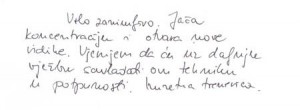 Vrlo zanimljivo. Jača
koncentraciju i otvara nove
vidike. Vjerujem da ću uz daljnju
vježbu savladati ovu tehniku
u potpunosti.